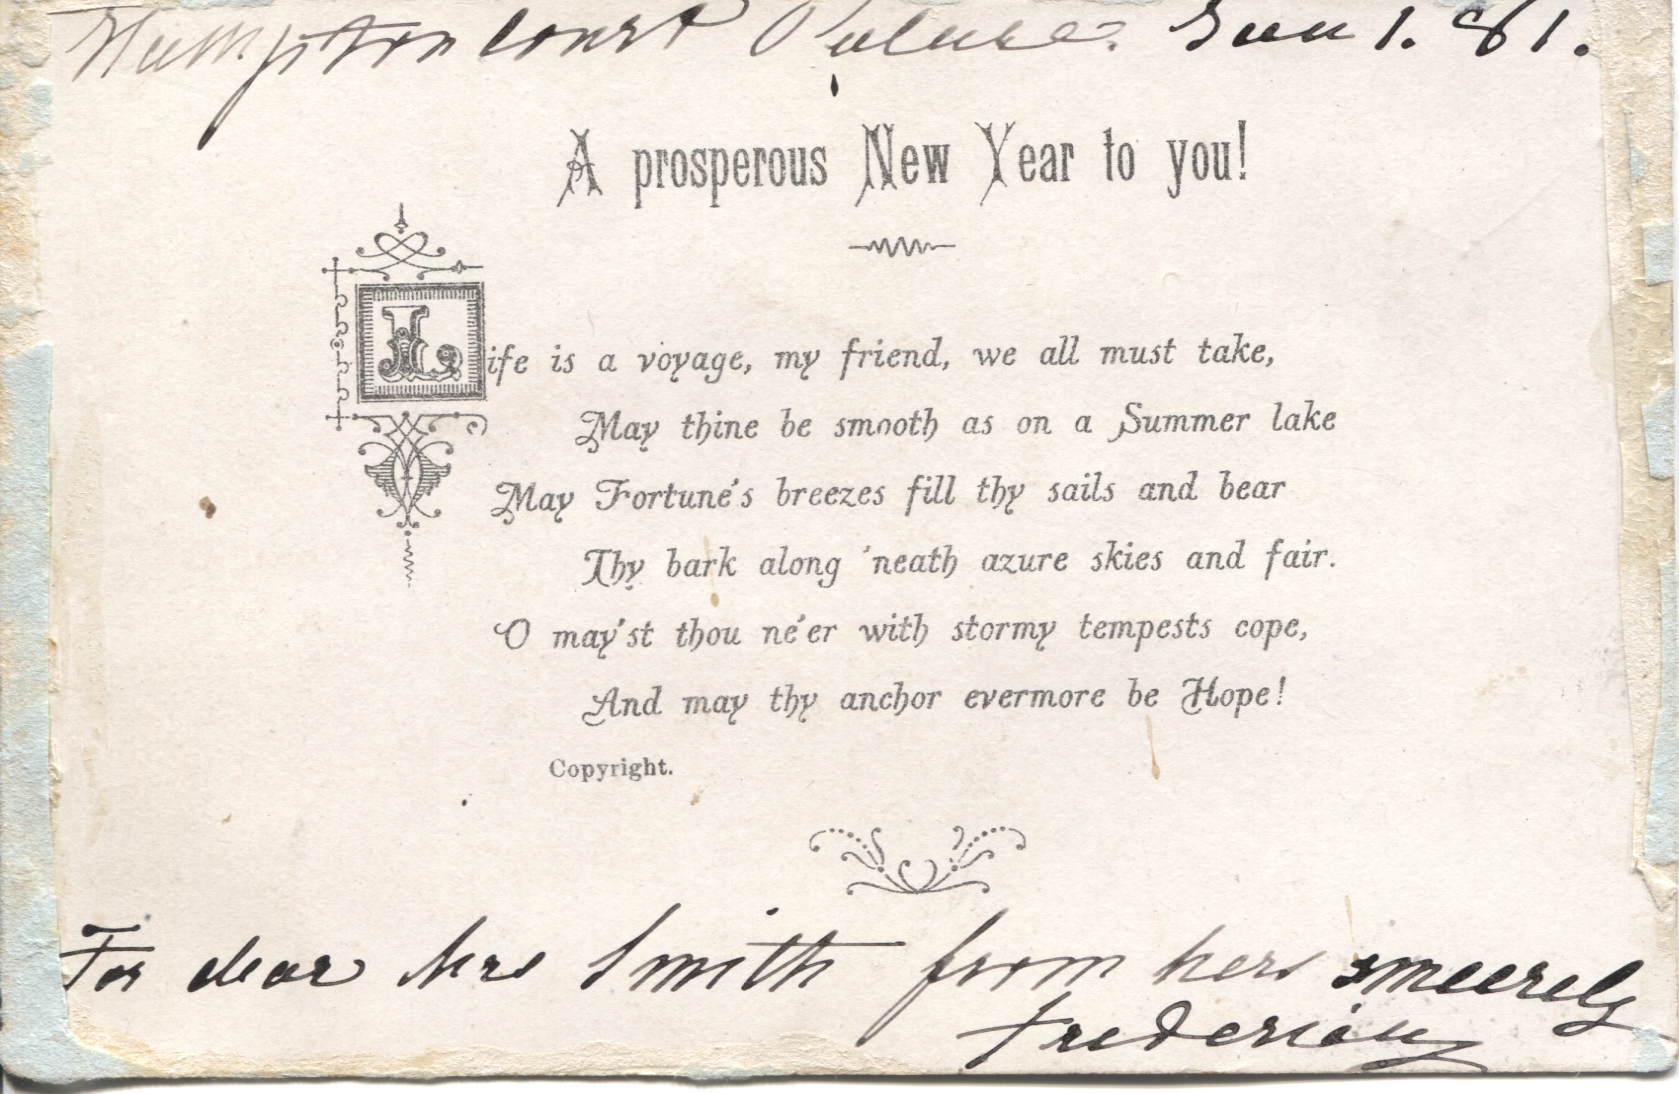 Hampton Court Palace. Jan 1. 81.
A prosperous New Year to you!
Life is a voyage, my friend, we all must take,
May thine be smooth as on a Summer lake
May Fortune's breezes fill thy sails and bear
Thy bark along 'neath azure skies and fair.
O may'st thou ne'er with stormy tempests cope,
And may thy anchor evermore be Hope!
Copyright.
For dear Mrs Smith from hers sincerely